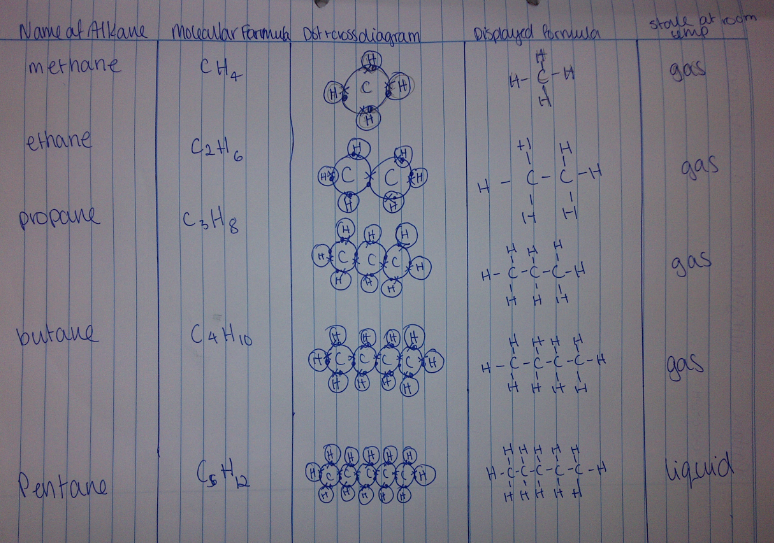 Name of Alkane Molecular Formula Dot + cross diagram Displayed formula state at room temp
methane CH4 H H C H H H H-C-H H gas
ethane C2H6 H H H C C H H H H H H - C - C - H H H gas
propane C3H8 H H H H C C C H H H H H H H H-C-C-C-H H H H gas
butane C4H10 H H H H H C C C C H H H H H H H H H H-C-C-C-C-H H H H H gas
Pentane C5H12 H H H H H H C C C C C H H H H H H H H H H H H-C-C-C-C-C-H H H H H H liquid